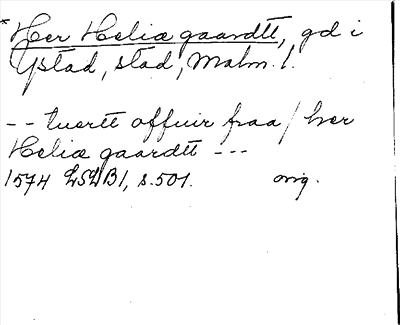 * Her Heliæ gaardtt, gd i
Ystad, stad, Malm. l.
-- tuertt offuir fraa / her
Heliæ gaardtt ---
1574 LSLB1, s.501. orig.